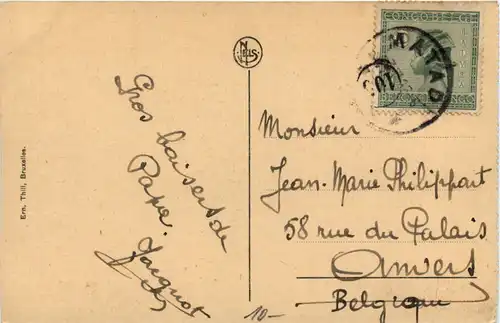 Ern. Thill, Bruxelles.
Gros baisers de
Papa.
NELS
MATADI
Monsieur
Jean-Marie Philippart
58 rue du Palais
Anvers
Belgique
10-